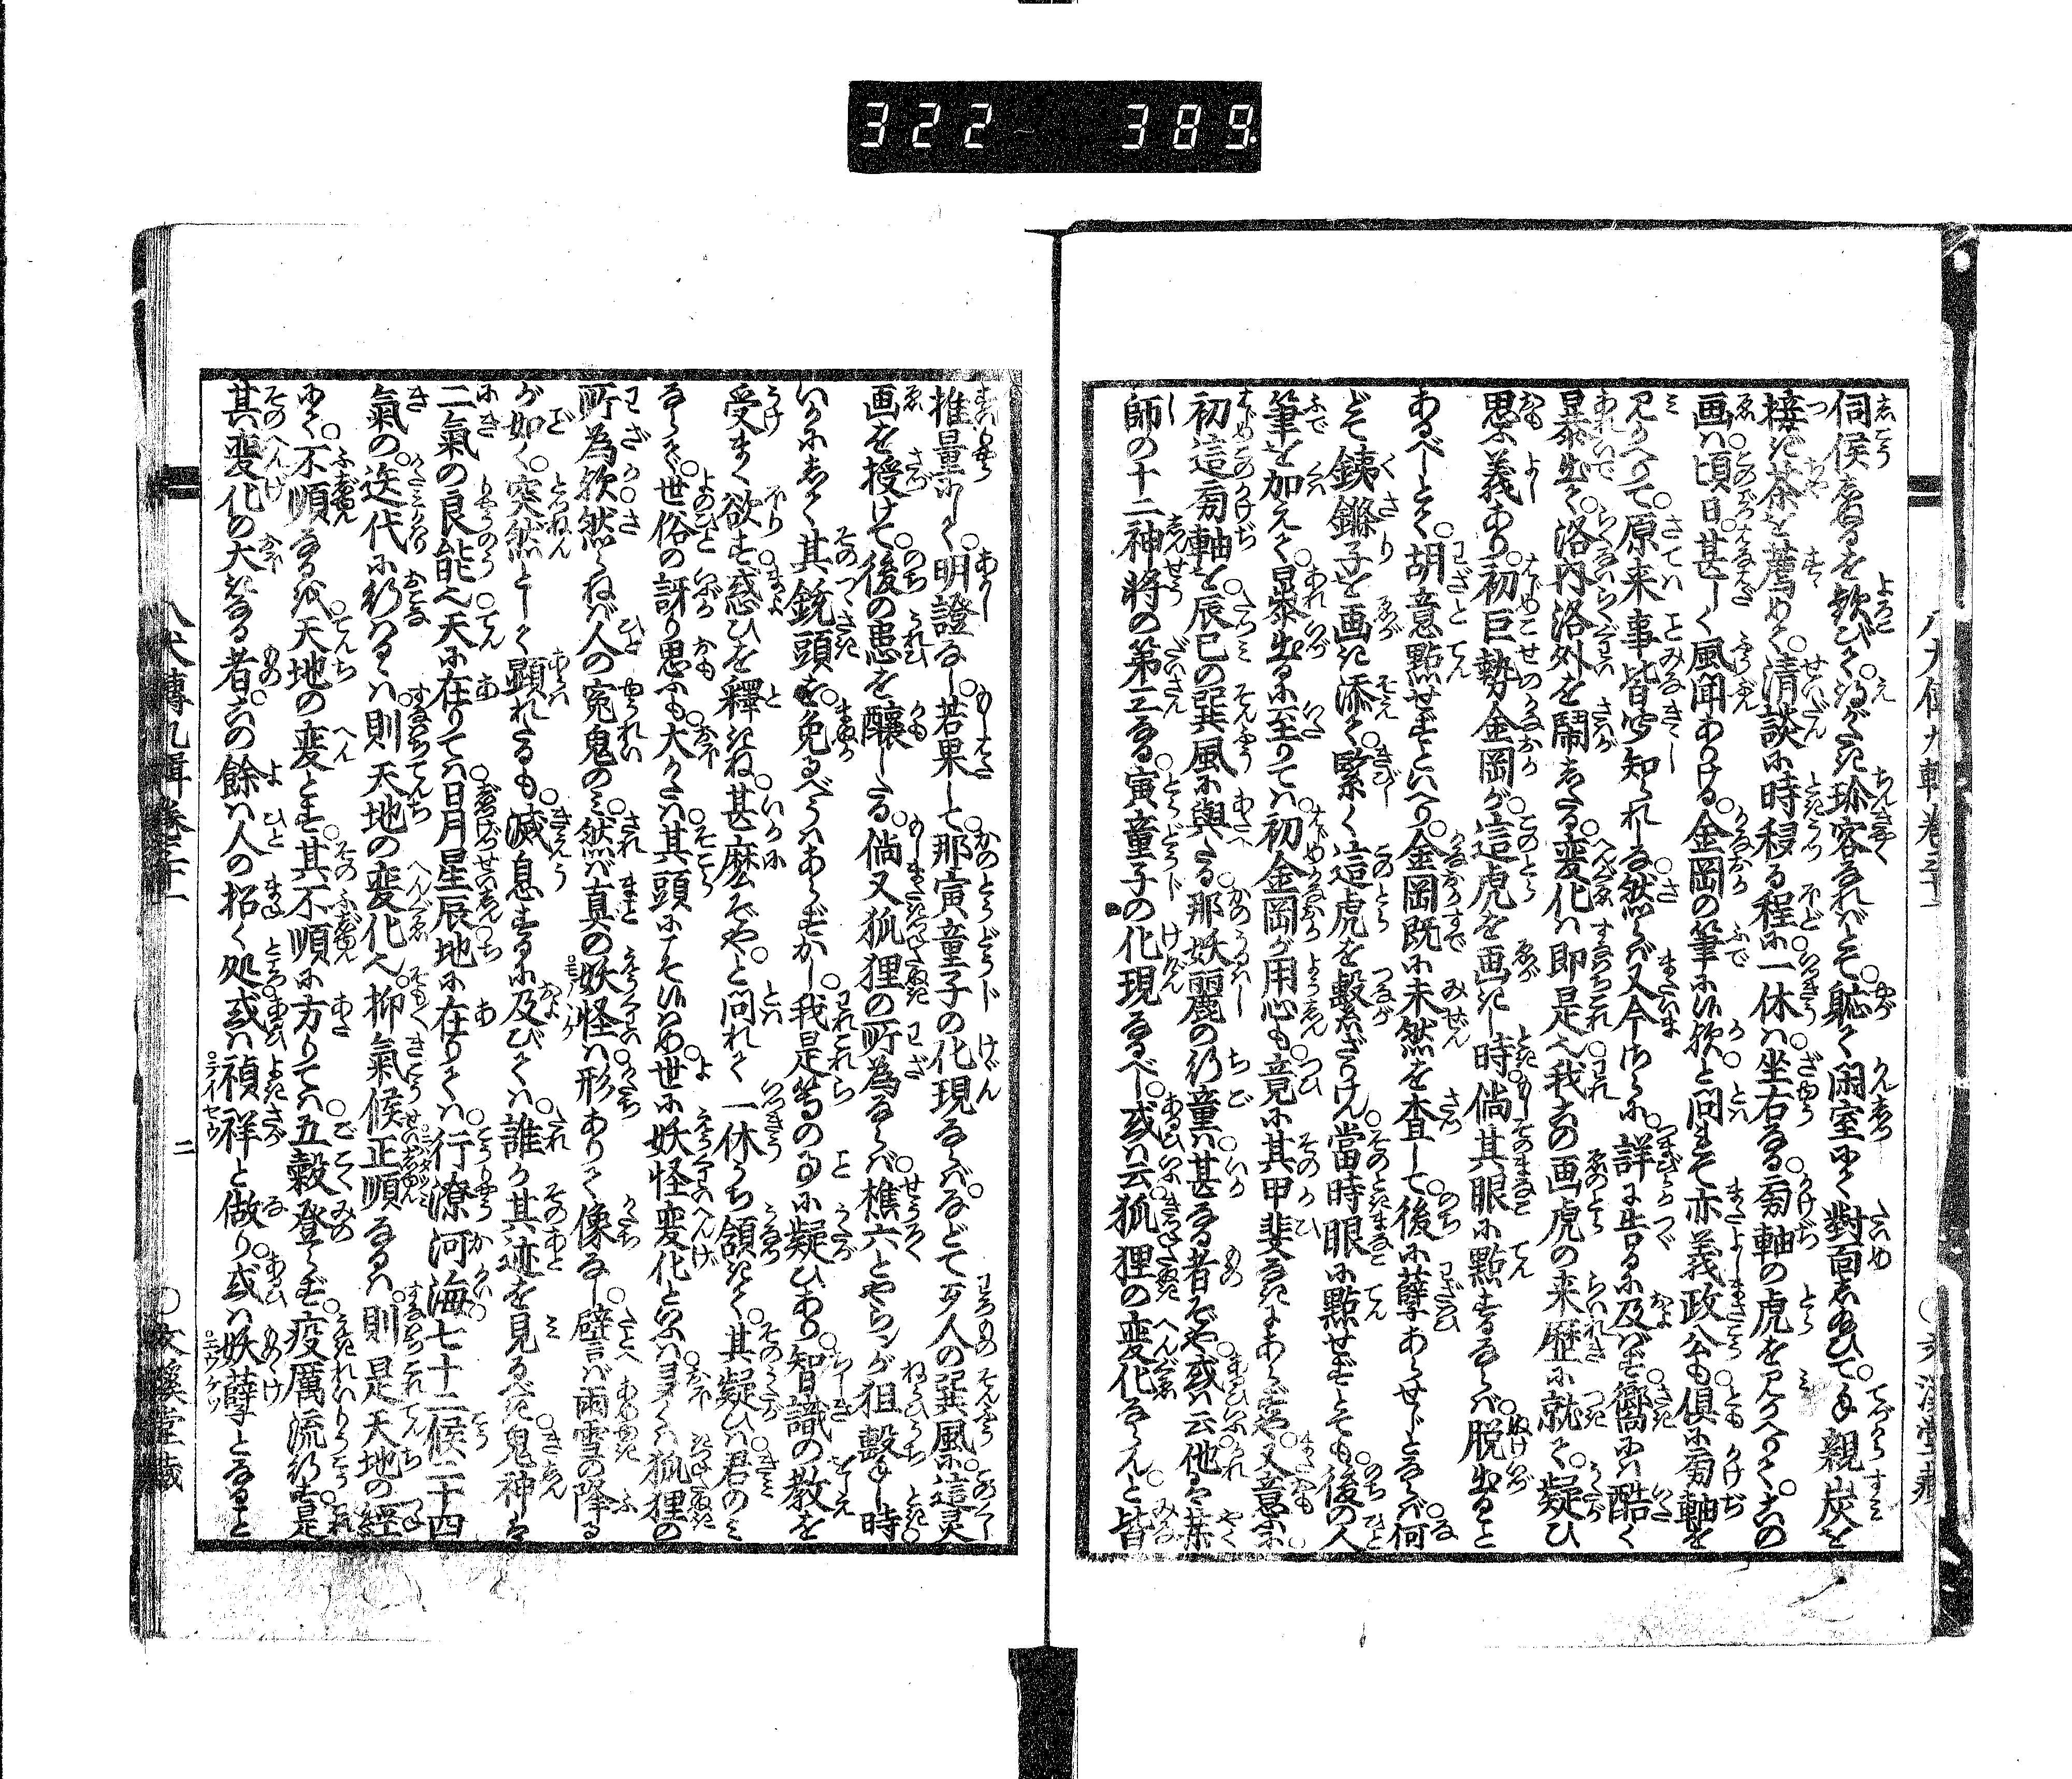 322 389
伺候しぬるを歓びて。得がたき珍客なればとて。軈て閑室にて對面しぬひて。手親炭を
接ぎ茶を薦めて。清談に時移る程に一休は坐右なる畐軸の虎を見かへりて。這の
画は頃日。甚しく風聞ありける。金岡の筆に候歟と問まそ亦義政公も倶に畐軸を
見かへりて。原来事皆聞知られしな然らば又今さらに。詳に告るに及ばず。嚮には酷く
暴出て。洛内洛外を鬧しゝる変化は即是也。我この画虎の来歴に就て。疑ひ
思ふ義あり。初巨勢金岡が。這虎を画きし時倘其眼に點するならば。脱出ること
あるべしとて。胡意點せずといへり。金岡既に未然を査して後に孽あらせじとならば。何
どて銕鏈子を画き添て。緊く這虎を繋ざりけん。當時眼に點せずとても。後の人
筆を加えて。暴出るに至りては。初金岡が用心も。竟に其甲斐なきにあらずや。又意ふに
初這畐軸を。辰巳の巽風に與たる。那妖麗の行童は。甚なる者ぞや。或は云他は薬
師の十二神将の第三なる。寅童子の化現なるべし。或は云狐狸の変化ならんと。皆
推量にして。明證なし。若果して那寅童子の化現ならば。などて歹人の巽風に。這灵
画を授けて。後の患を醸したる。倘又狐狸の所為ならば。樵六とやらンが狙撃し時
いかにして其銃頭を。免るべうはあらずかし。我是等の事に疑ひあり。智識の教を
受まく欲す惑ひを釋きね。甚麼ぞや。と問れて一休うち頷きて。其疑ひは君のミ
ならで。世俗の訝り思ふも。大かたは其頭にそ候はめ。世に妖怪変化といふは。多くは狐狸の
所為歟。然らねば人の寃鬼のミ。然ば真の妖怪は。形ありて像なし。譬言ば雨雪の降る
が如く。突然として顕れたるも。滅息するに及びては。誰か其迹を見るべき。鬼神は
二氣の良能也。天に在りては日月星辰。地に在りては。行潦河海。七十二候。二十四
氣の。迭代に行はるゝは。則天地の変化也。抑氣候正順なるは。則是天地の經
にて。不順なるは天地の変とす。其不順に方りては五穀登らず。疫厲流行す。是
其変化の大きなる者。この餘は人の招く処或は禎祥と做り。或は妖孽となること
八犬傳九輯巻三十一
二
〇文溪堂藏